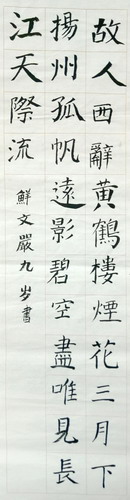 故人西辭黃鶴樓煙花三月下
揚州孤帆遠影碧空盡唯見長
江天際流
鮮文嚴九岁書